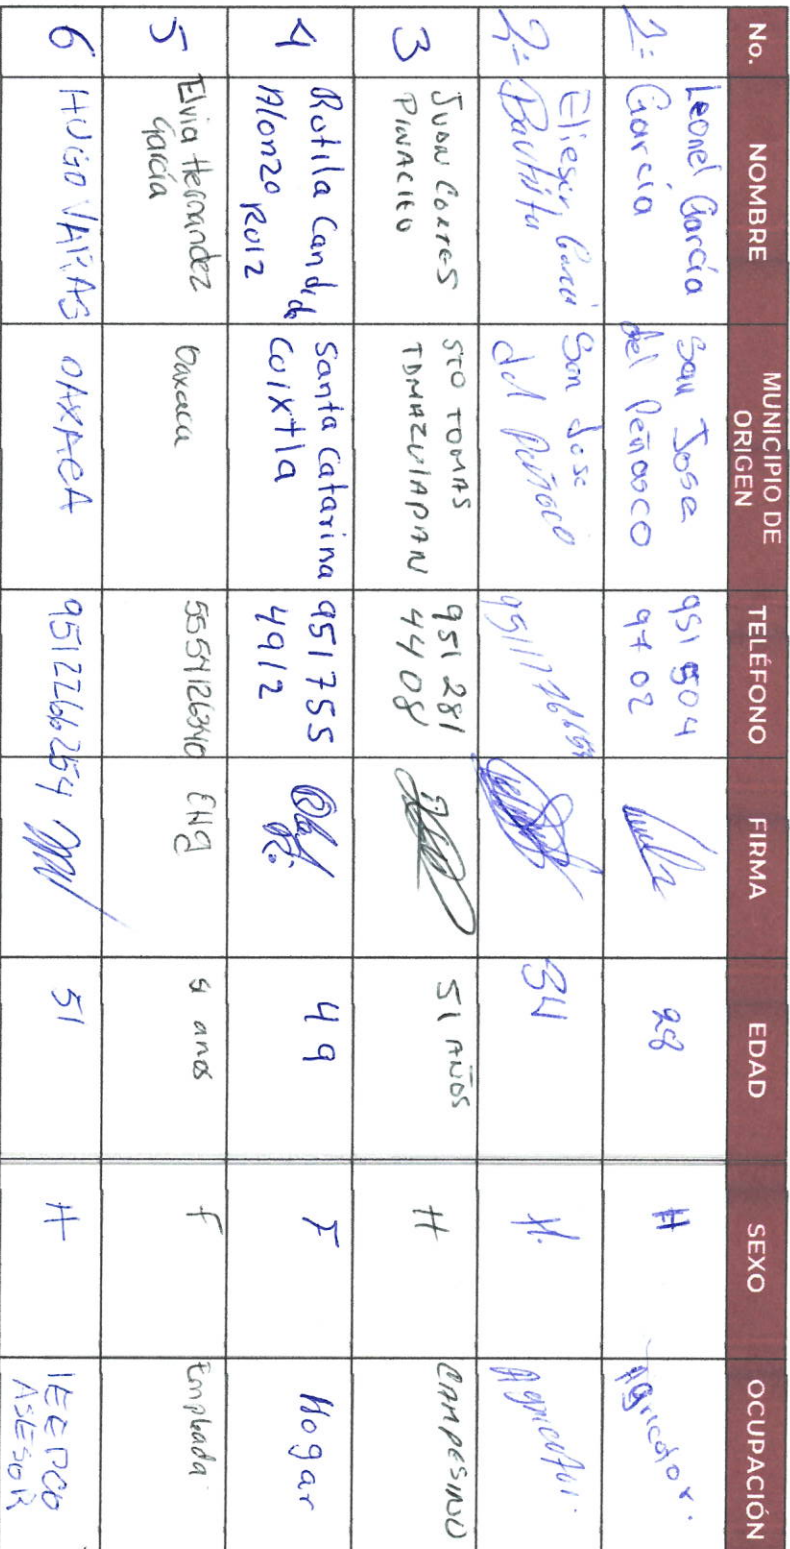 No. NOMBRE MUNICIPIO DE ORIGEN TELÉFONO FIRMA EDAD SEXO OCUPACIÓN
1= Leonel García García San Jose del Peñasco 951 504 97 02 28 H Agricultor.
2= Elieser García Bautista San Jose del Peñasco 34 H. Agricultor.
3 JUAN CORTES PINACHO STO TOMAS TAMAZULAPAN 951 281 4408 51 AÑOS H CAMPESINO
4 Rutila Candida Alonzo Ruiz Santa Catarina Cuixtla 951 755 4912 49 F Hogar
5 Elvia Hernandez García Oaxaca 5554126340 EHg 51 años f Empleada
6 HUGO VARGAS OAXACA 9512266254 51 H IEEPCO ASESOR